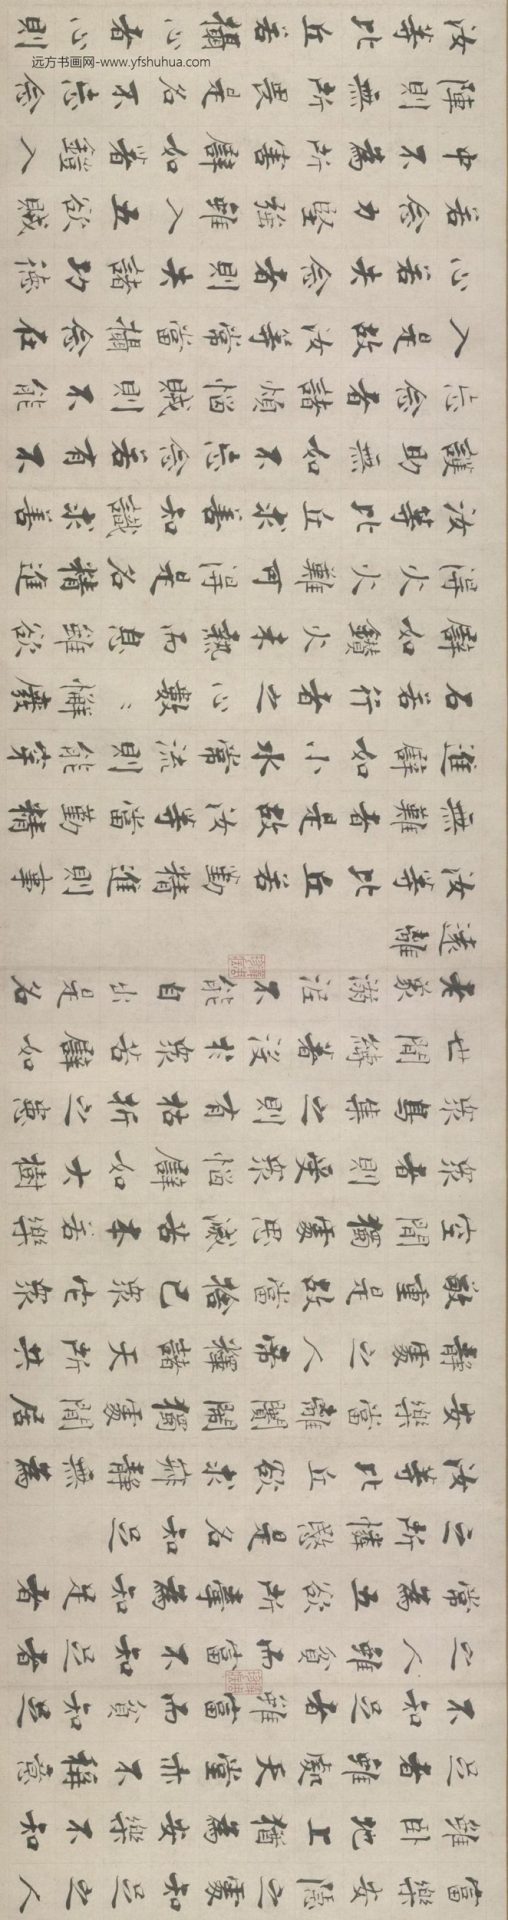 富樂安隱之處知足之人
雖卧地上猶為安樂不知
足者雖處天堂亦不稱意
不知足者雖富而貧知足
之人雖貧而富不知足者
常為五欲所牽為知足者
之所憐愍是名知足
汝等比丘欲求寂靜無為
安樂當離闠閙獨處閒居
靜處之人帝釋諸天所共
敬重是故當捨己衆他衆
空閒獨處思滅苦本若樂
衆者則受衆惱譬如大樹
衆鳥集之則有枯折之患
世間縛著没於衆苦譬如
老象溺泥不能自出是名
遠離
汝等比丘若勤精進則事
無難者是故汝等當勤精
進譬如小水常流則能穿
石若行者之心數〻懈廢
譬如鑽火未熱而息雖欲
得火火難可得是名精進
汝等比丘求善知識求善
護助無如不忘念若有不
忘念者諸煩惱賊則不能
入是故汝等常當攝念在
心若失念者則失諸功德
若念力堅強雖入五欲賊
中不為所害譬如著鎧入
陣則無所畏是名不忘念
汝等比丘若攝心者心則
远方书画网-www.yfshuhua.com